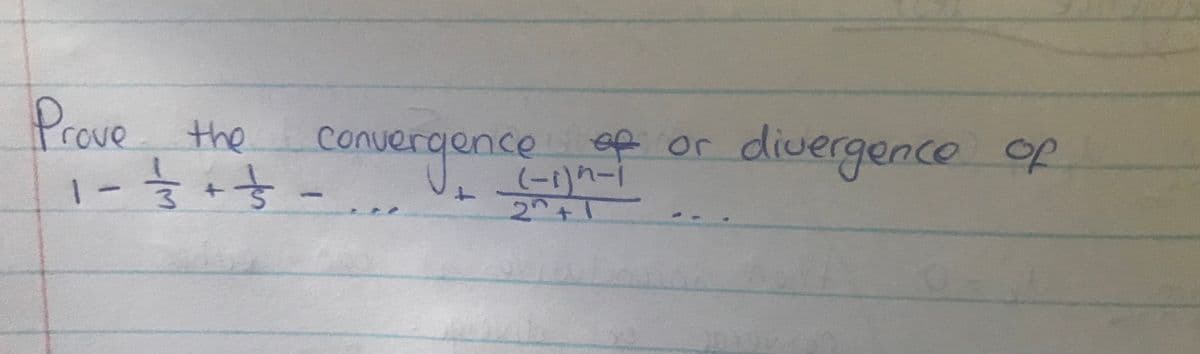 Prove the convergence of or divergence of
1 - 1/3 + 1/5 - ... + (-1)^n-1 / 2^n + 1 ...